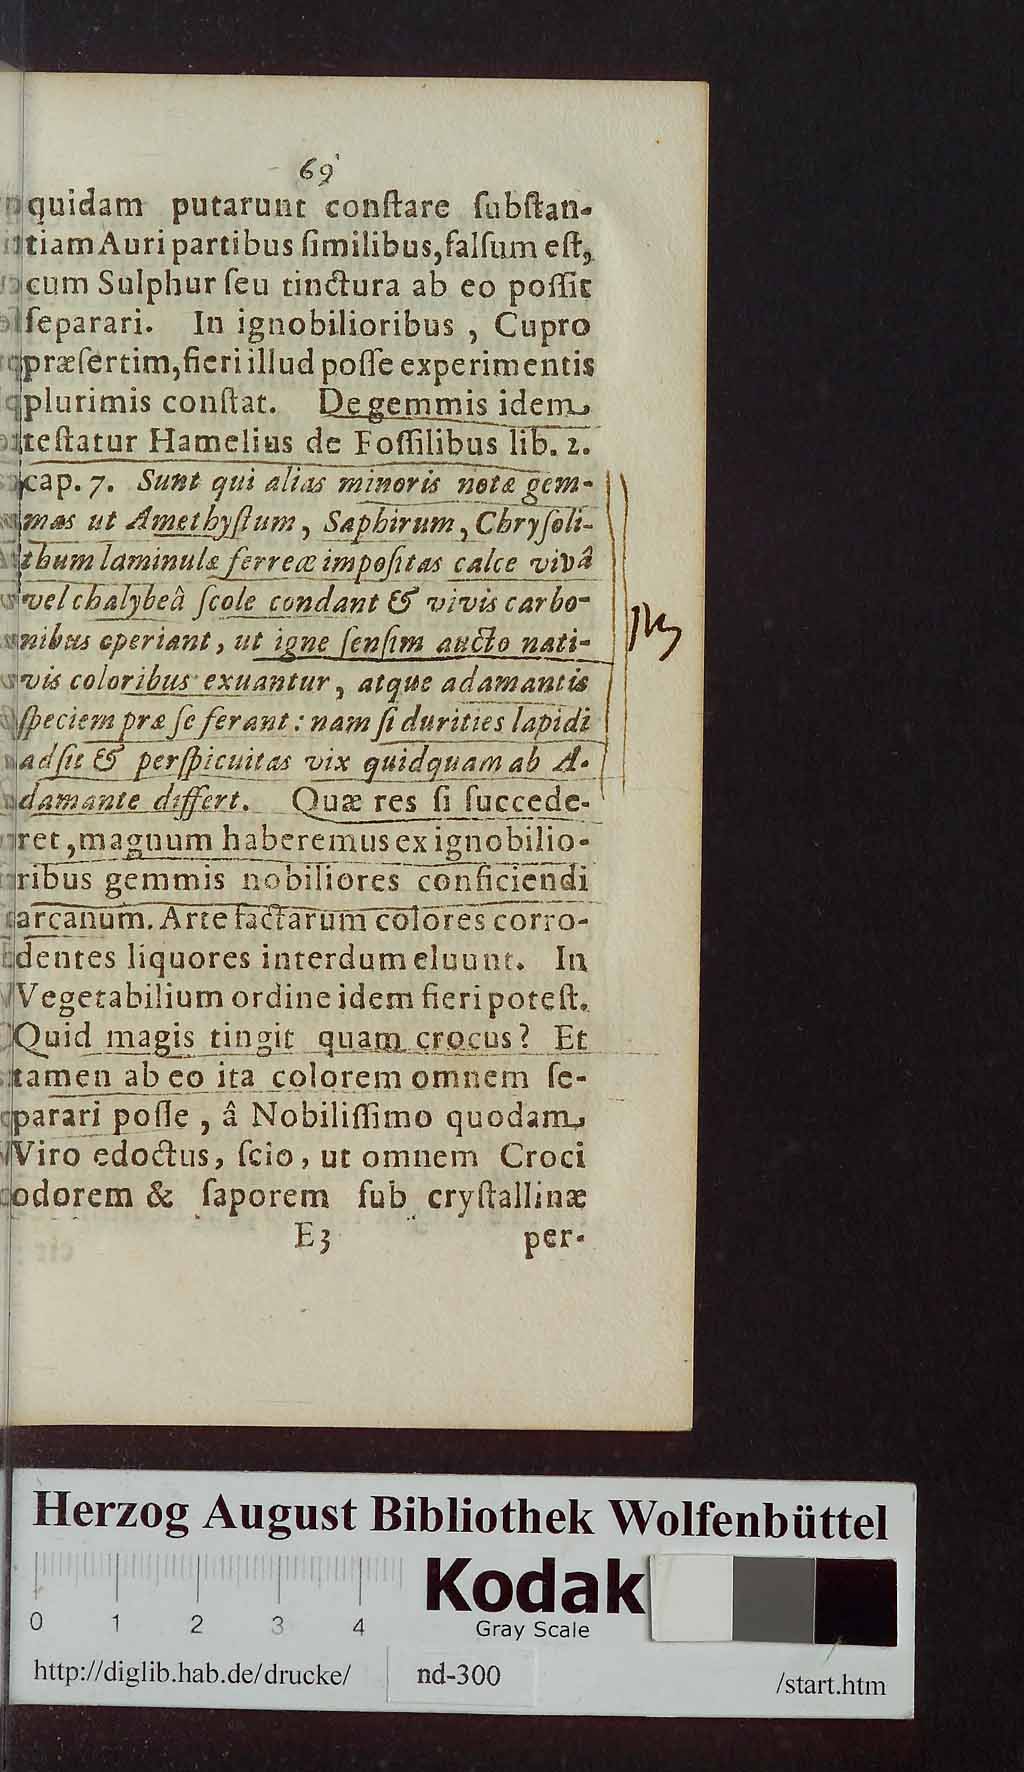 69
quidam putarunt conſtare ſubſtan-
tiam Auri partibus ſimilibus, falſum eſt,
cum Sulphur ſeu tinctura ab eo poſſit
ſeparari. In ignobilioribus, Cupro
præſertim, fieri illud poſſe experimentis
plurimis conſtat. De gemmis idem
teſtatur Hamelius de Foſſilibus lib. 2.
cap. 7. Sunt qui alias minoris notæ gem-
mas ut Amethyſtum, Saphirum, Chryſoli-
thum laminulæ ferreæ impoſitas calce vivâ
vel chalybeâ ſcole condant & vivis carbo-
nibus operiant, ut igne ſenſim aucto nati-
vis coloribus exuantur, atque adamantis
ſpeciem præ ſe ferant: nam ſi durities lapidi
adſit & perſpicuitas vix quidquam ab A-
damante differt. Quæ res ſi ſuccede-
ret, magnum haberemus ex ignobilio-
ribus gemmis nobiliores conficiendi
arcanum. Arte factarum colores corro-
dentes liquores interdum eluunt. In
Vegetabilium ordine idem fieri poteſt.
Quid magis tingit quam crocus? Et
tamen ab eo ita colorem omnem ſe-
parari poſſe, â Nobiliſſimo quodam
Viro edoctus, ſcio, ut omnem Croci
odorem & ſaporem ſub cryſtallinæ
E3 per-
Herzog August Bibliothek Wolfenbüttel
Kodak
Gray Scale
0 1 2 3 4
http://diglib.hab.de/drucke/ nd-300 /start.htm